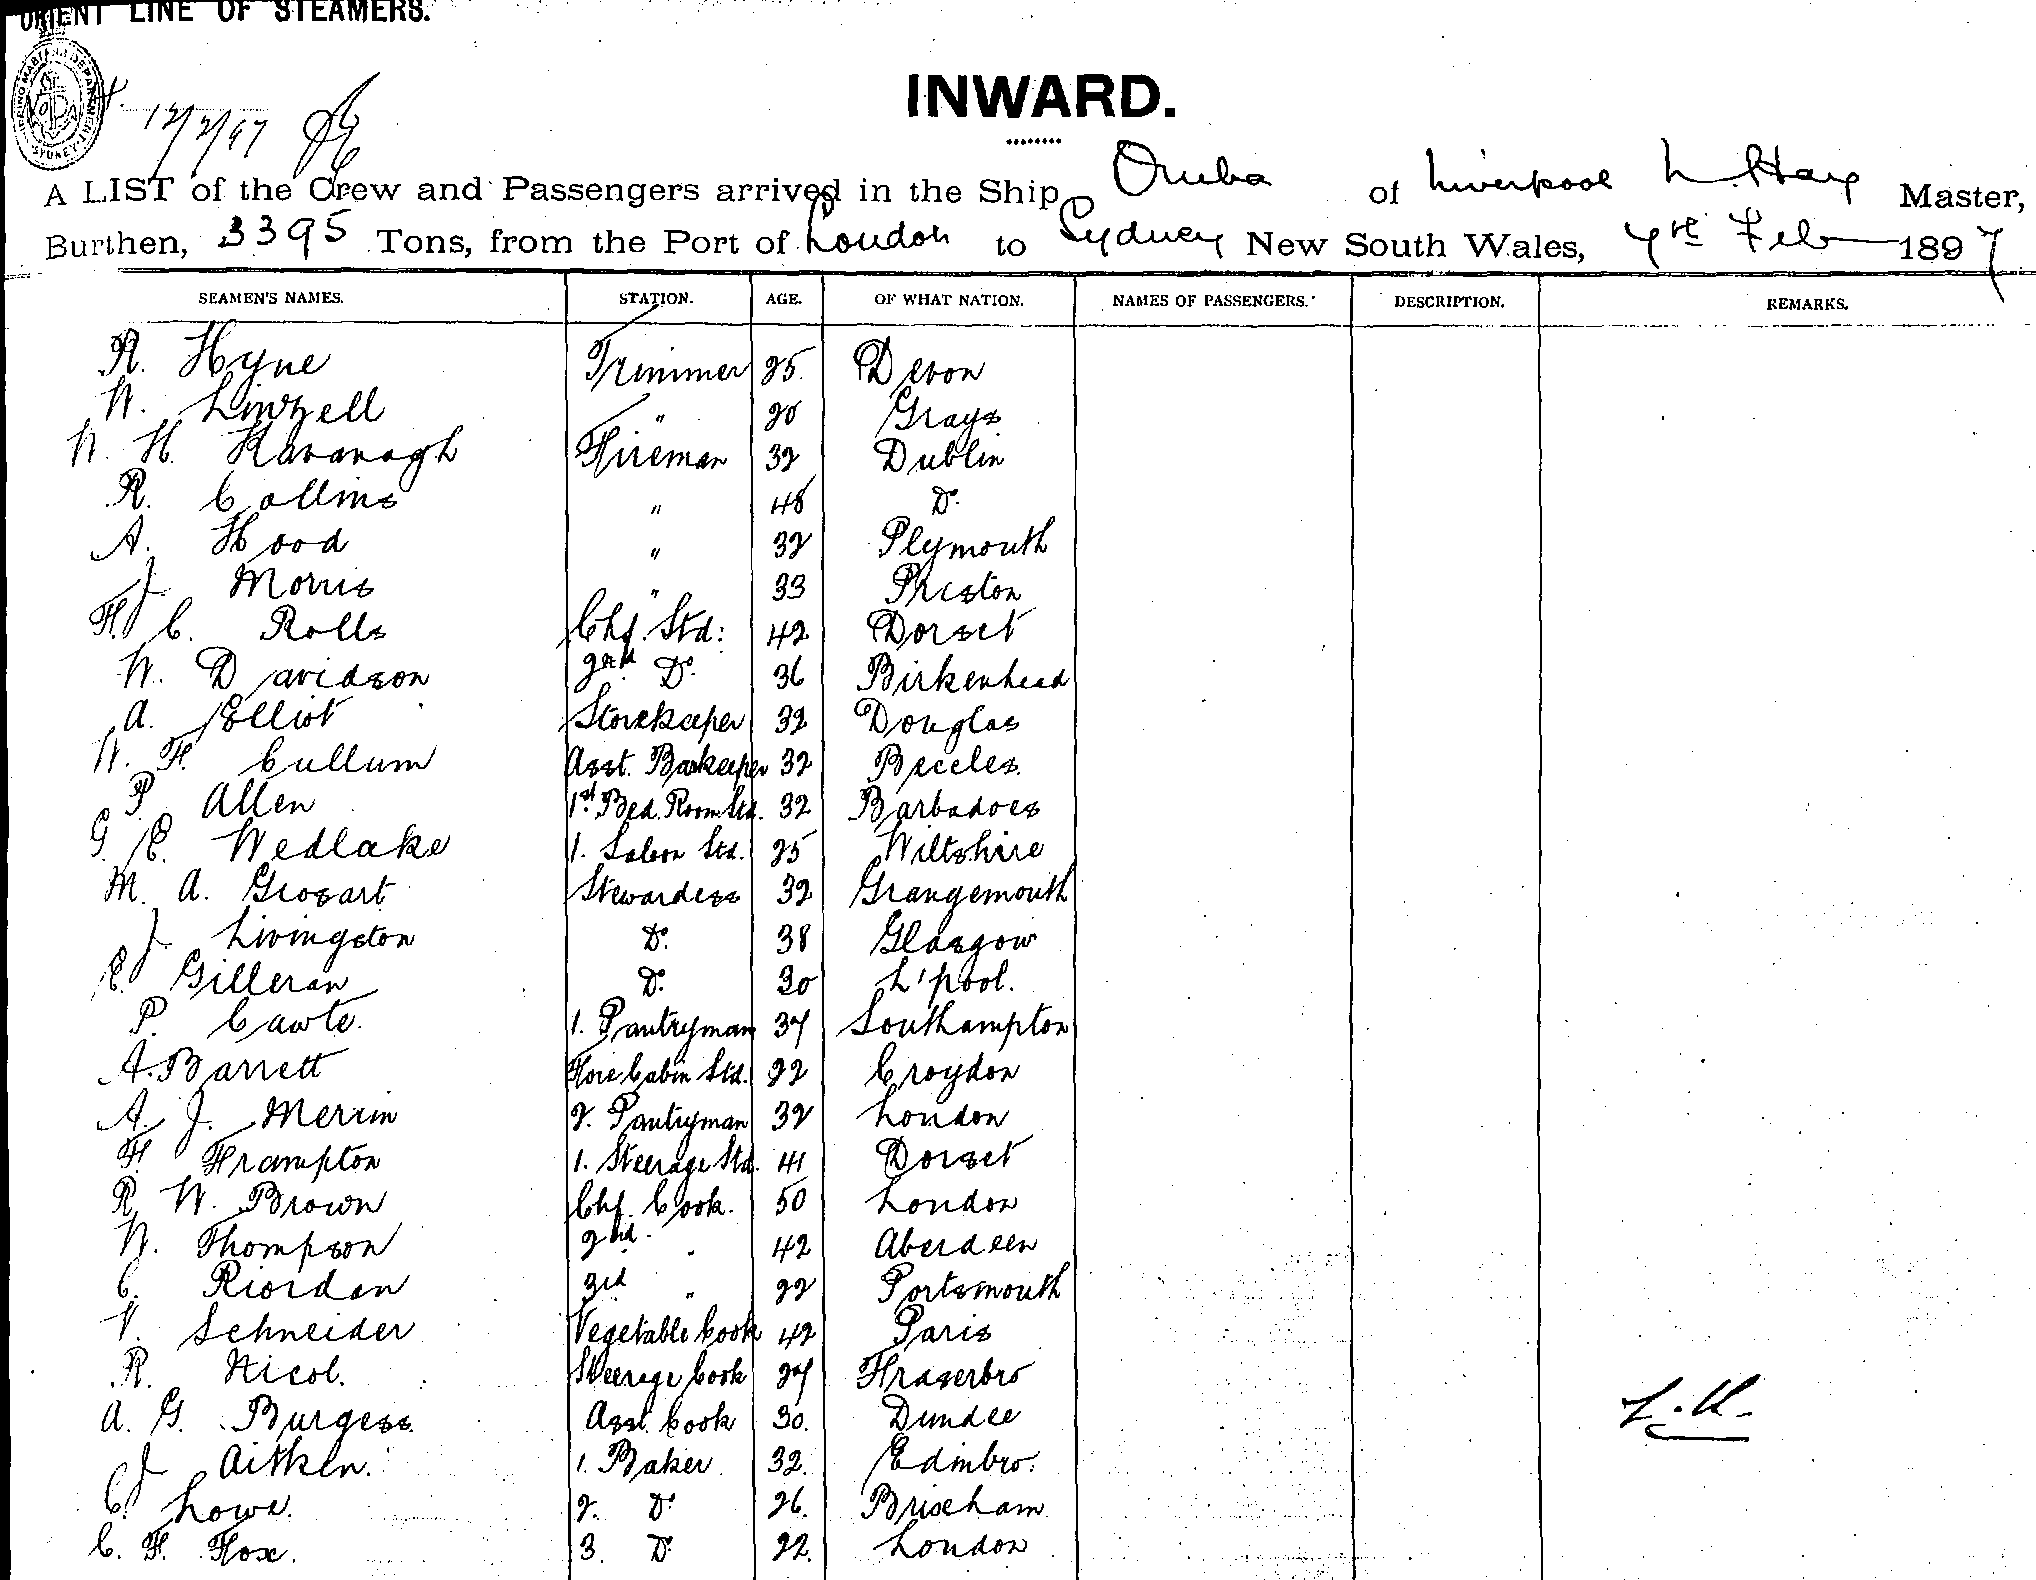 ORIENT LINE OF STEAMERS.
SYDNEY
12/2/97
INWARD.
A LIST of the Crew and Passengers arrived in the Ship Oruba of Liverpool Master,
Burthen, 3395 Tons, from the Port of London to Sydney New South Wales, 7th Feb 1897
SEAMEN'S NAMES. STATION. AGE. OF WHAT NATION. NAMES OF PASSENGERS. DESCRIPTION. REMARKS.
R. Hyne Trimmer 25. Devon
W. Linzell " 20 Grays
W. H. Kavanagh Fireman 32 Dublin
R. Collins " 48 Do.
A. Hood " 32 Plymouth
J. Morris " 33 Preston
H. C. Rolls Chf. Std: 42 Dorset
W. Davidson 2nd Do. 36 Birkenhead
A. Elliot Storekeeper 32 Douglas
W. F. Cullum Asst. Barkeeper 32 Beccles.
P. Allen 1st Bed Room Std. 32 Barbadoes
G. E. Wedlake 1. Saloon Std. 25 Wiltshire
M. A. Grosart Stewardess 32 Grangemouth
J. Livingston Do. 38 Glasgow
E. Gilleran Do. 30 L'pool.
P. Cawte. 1. Pantryman 37 Southampton
A. Barrett Fore Cabin Std. 22 Croydon
A. J. Merrin 2. Pantryman 32 London
F. Frampton 1. Steerage Std. 41 Dorset
R. W. Brown Chf. Cook. 50 London
W. Thompson 2nd " 42 Aberdeen
C. Riordan 3rd " 22 Portsmouth
V. Schneider Vegetable Cook 42 Paris
R. Nicol. Steerage Cook 27 Fraserbro
A. G. Burgess. Asst. Cook 30. Dundee
J. Aitken. 1. Baker. 32. Edinbro.
C. Lowe. 2. Do. 26. Brixham
C. F. Fox. 3. Do. 22. London